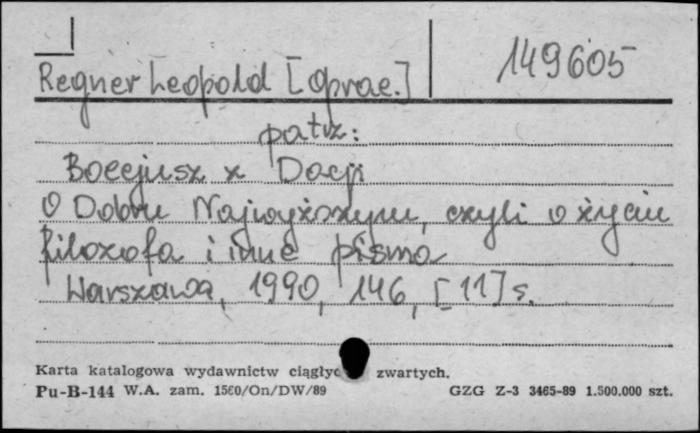 149605
Regner Leopold [oprac.]
patrz:
Boecjusz z Dacji
O Dobru Najwyższym, czyli o życiu
filozofa i inne pisma
Warszawa, 1990, 146, [11] s.
Karta katalogowa wydawnictw ciągłyc zwartych.
Pu-B-144 W.A. zam. 1560/On/DW/89 GZG Z-3 3465-89 1.500.000 szt.